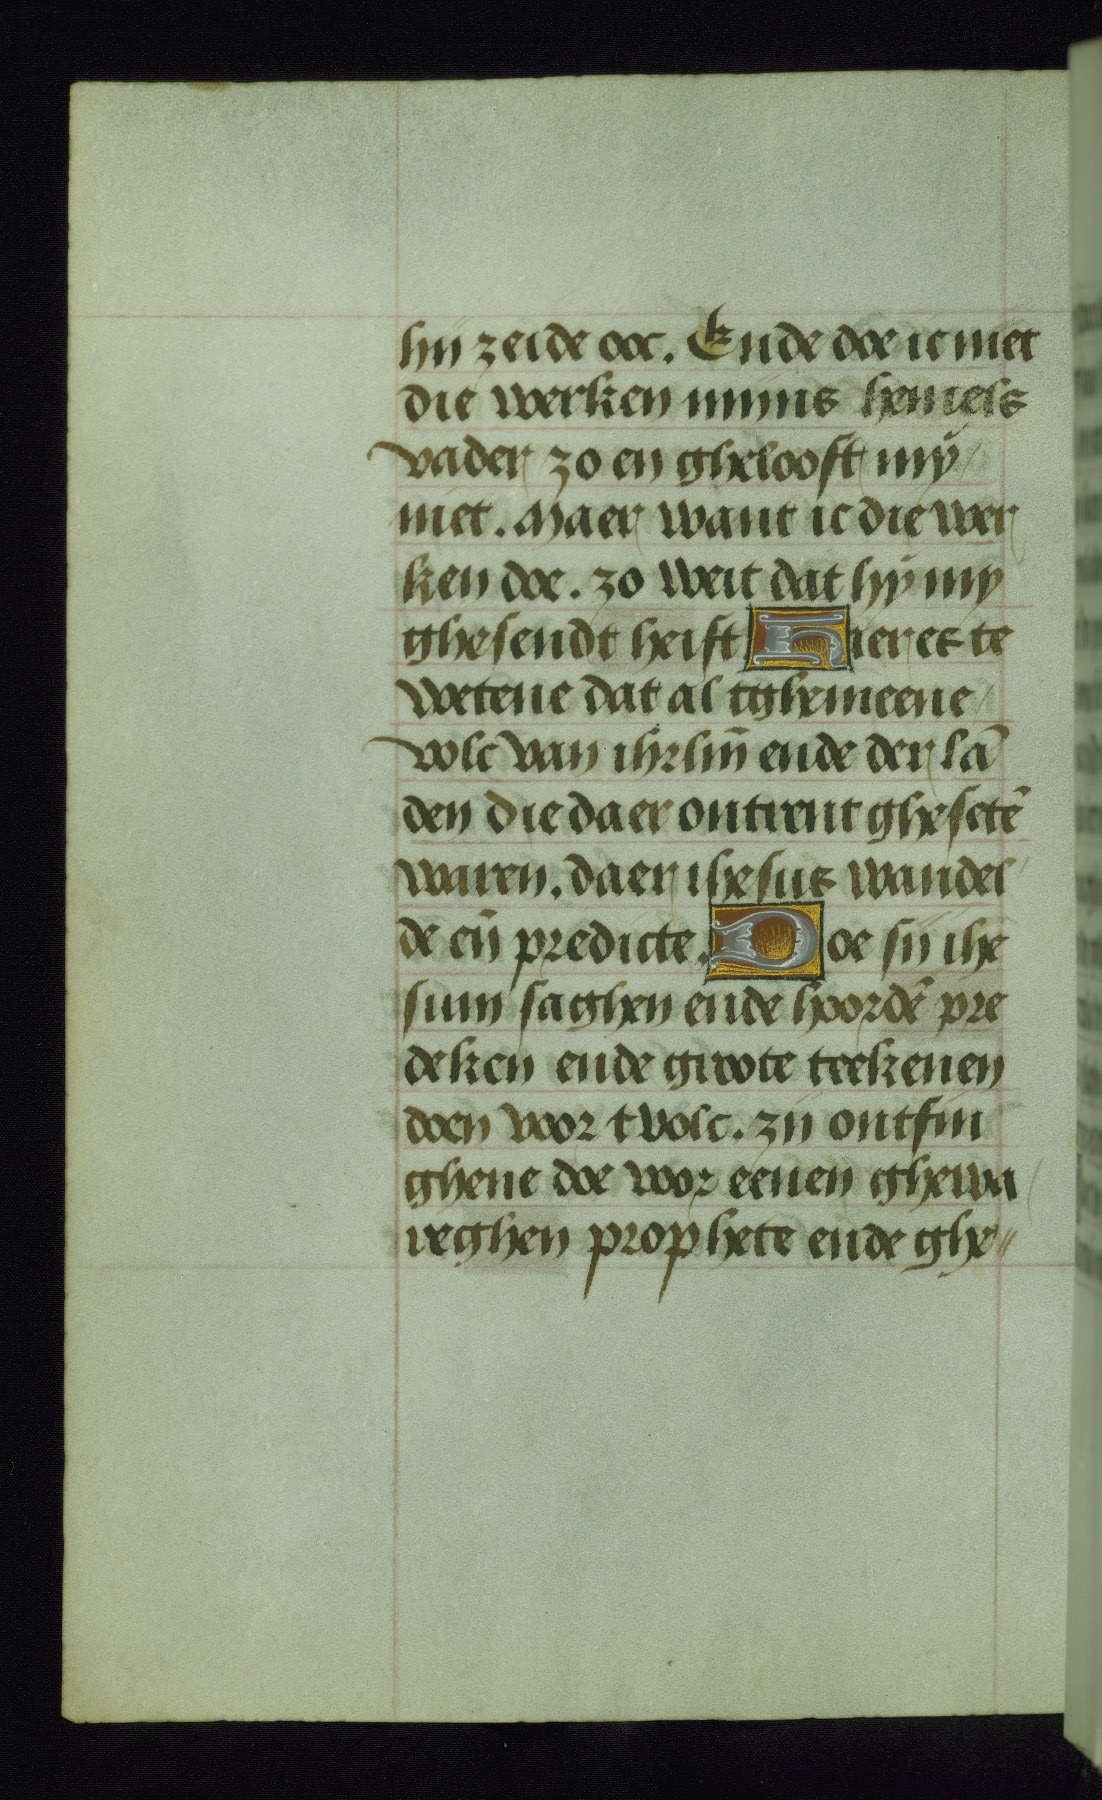 hij zeide ooc. Ende doe ic niet
die werken mijns hemels
vader zo en ghelooft mÿ
niet. Maer want ic die wer
ken doe. zo weit dat hÿ my
ghesendt heift Hier es te
wetene dat al tghemeene
volc van ihrlm̄ ende der lā
den die daer ontrent ghesetē
waren. daer ihesus wandel
de eñ predicte. Doe sij ihe
sum saghen ende hoordē pre
deken ende groote teekenen
doen voor tvolc. zij ontfin
ghene doe vor eenen ghewa
reghen prophete ende ghe〃